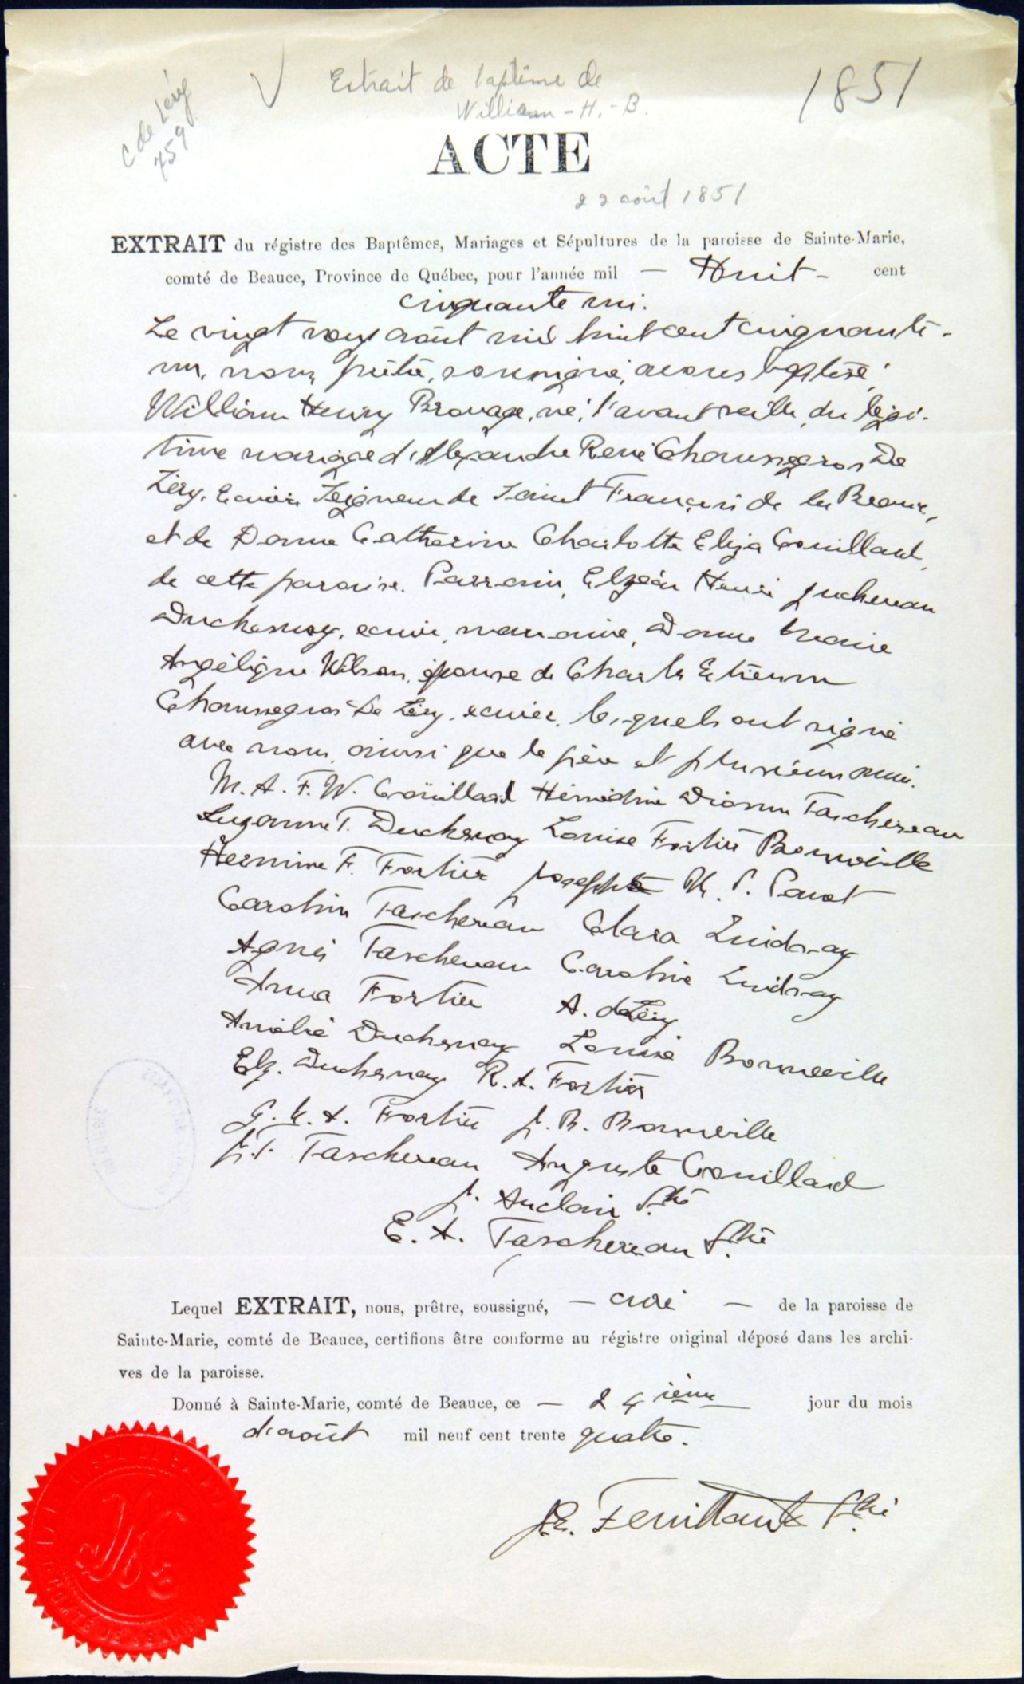 C de Léry
759
Extrait de baptême de
William-H.-B.
1851
ACTE
22 août 1851
EXTRAIT du régistre des Baptêmes, Mariages et Sépultures de la paroisse de Sainte-Marie,
comté de Beauce, Province de Québec, pour l'année mil — Huit — cent
cinquante un.
Le vingt août mil huit cent cinquante-
un, nous prêtre, soussigné, avons baptisé
William Henry Brouage, né, l'avant veille, du légi-
time mariage d'Alexandre René Chaussegros De
Léry, Ecuier Seigneur de Saint François de la Beauce,
et de Dame Catherine Charlotte Eliza Couillard,
de cette paroisse. Parrain, Elzéar Henri Juchereau
Duchesnay, ecuier, marraine, Dame Marie
Angélique Wilson, épouse de Charles Etienne
Chaussegros De Léry, ecuier, lesquels ont signé
avec nous, ainsi que le père et plusieurs amis.
M. A. F. W. Coüillard Hénédine Dionne Taschereau
Suzanne T. Duchesnay Louise Fortier Bonneville
Hermine F. Fortier Josephte P. Parot
Caroline Taschereau Clara Lindsay
Agnès Taschereau Caroline Lindsay
Anna Fortier A. de Léry
Amélie Duchesnay Louise Bonneville
Elz. Duchesnay R. A. Fortier
Fortier J. B. Bonneville
J. T. Taschereau Auguste Couillard
J. Auclair Ptre
E. A. Taschereau Ptre
Lequel EXTRAIT, nous, prêtre, soussigné, — curé — de la paroisse de
Sainte-Marie, comté de Beauce, certifions être conforme au régistre original déposé dans les archi-
ves de la paroisse.
Donné à Sainte-Marie, comté de Beauce, ce — 24 ième jour du mois
d'août mil neuf cent trente quatre.
J. E. Feuiltault Ptre